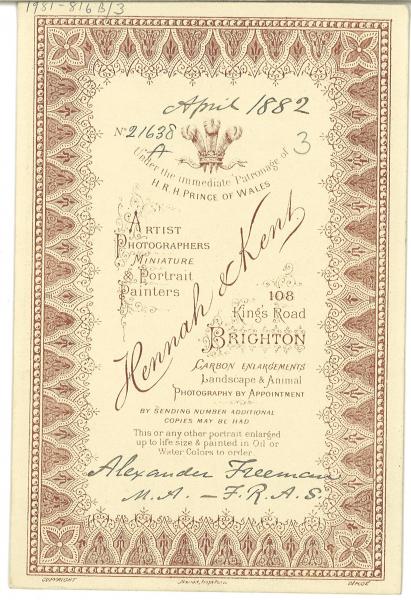 1981-816B/3
April 1882
No 21638
A
3
Under the immediate Patronage of
H.R.H. PRINCE OF WALES
ARTIST
PHOTOGRAPHERS
MINIATURE
& Portrait
Painters
Hennah & Kent
108
Kings Road
BRIGHTON
CARBON ENLARGEMENTS
Landscape & Animal
PHOTOGRAPHY BY APPOINTMENT
BY SENDING NUMBER ADDITIONAL
COPIES MAY BE HAD
This or any other portrait enlarged
up to life size & painted in Oil or
Water Colors to order
Alexander Freeman
M.A. – F.R.A.S.
COPYRIGHT